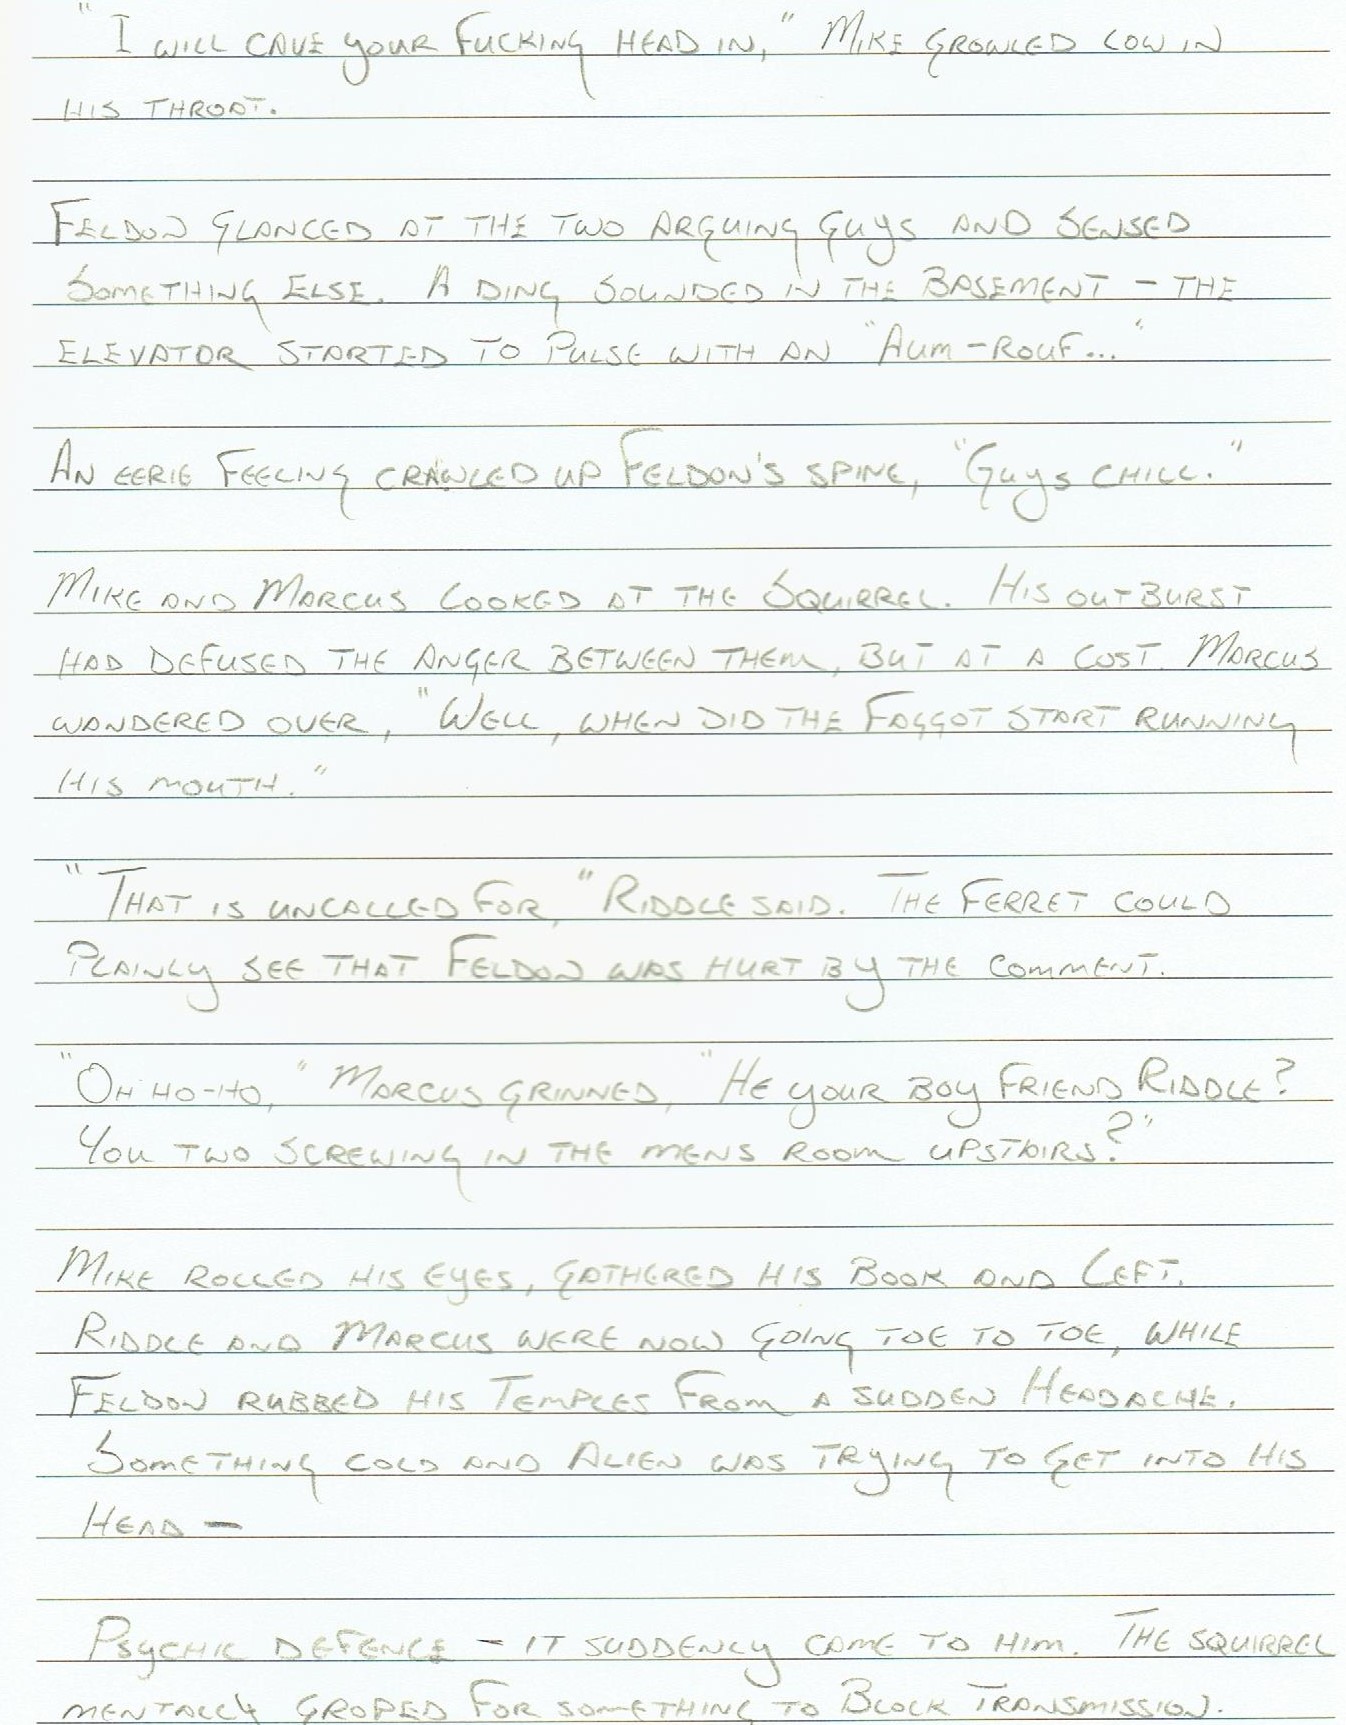 "I will cave your fucking head in," Mike growled low in
his throat.
Feldon glanced at the two arguing guys and sensed
something else. A ding sounded in the basement – the
elevator started to pulse with an "Aum-Rouf..."
An eerie feeling crawled up Feldon's spine, "Guys chill."
Mike and Marcus looked at the squirrel. His outburst
had defused the anger between them, but at a cost. Marcus
wandered over, "Well, when did the faggot start running
his mouth."
"That is uncalled for," Riddle said. The ferret could
plainly see that Feldon was hurt by the comment.
"Oh ho-ho," Marcus grinned, "He your boy friend Riddle?
You two screwing in the mens room upstairs?"
Mike rolled his eyes, gathered his book and left.
Riddle and Marcus were now going toe to toe, while
Feldon rubbed his temples from a sudden headache.
Something cold and alien was trying to get into his
head –
Psychic defence – it suddenly came to him. The squirrel
mentally groped for something to block transmission.